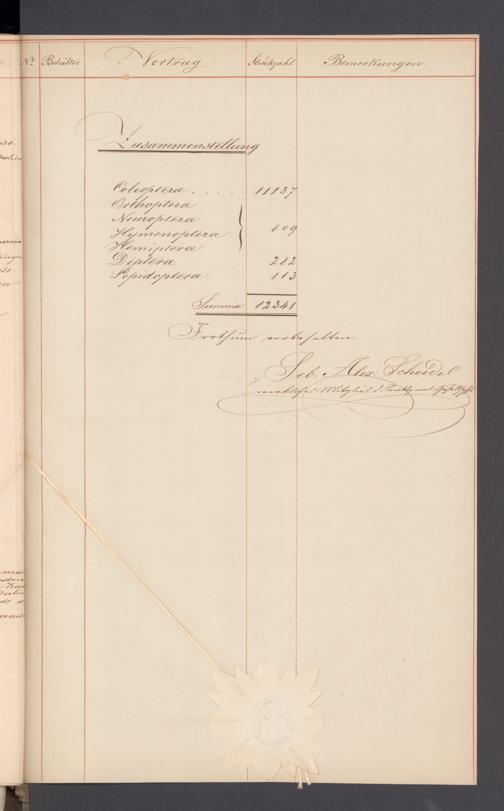 No. Behälter Vortrag Stückzahl Bemerkungen.
Zusammenstellung
Coleoptera . . . . . 11137
Orthoptera
Neuroptera
Hymenoptera 809
Hemiptera
Diptera . . . . 282
Lepidoptera . . . . 113
Summa 12341
Irrthum vorbehalten
Seb. Alex. Scheidel
wirkliches Mitglied d. Senckenb. nat. Gesellschft